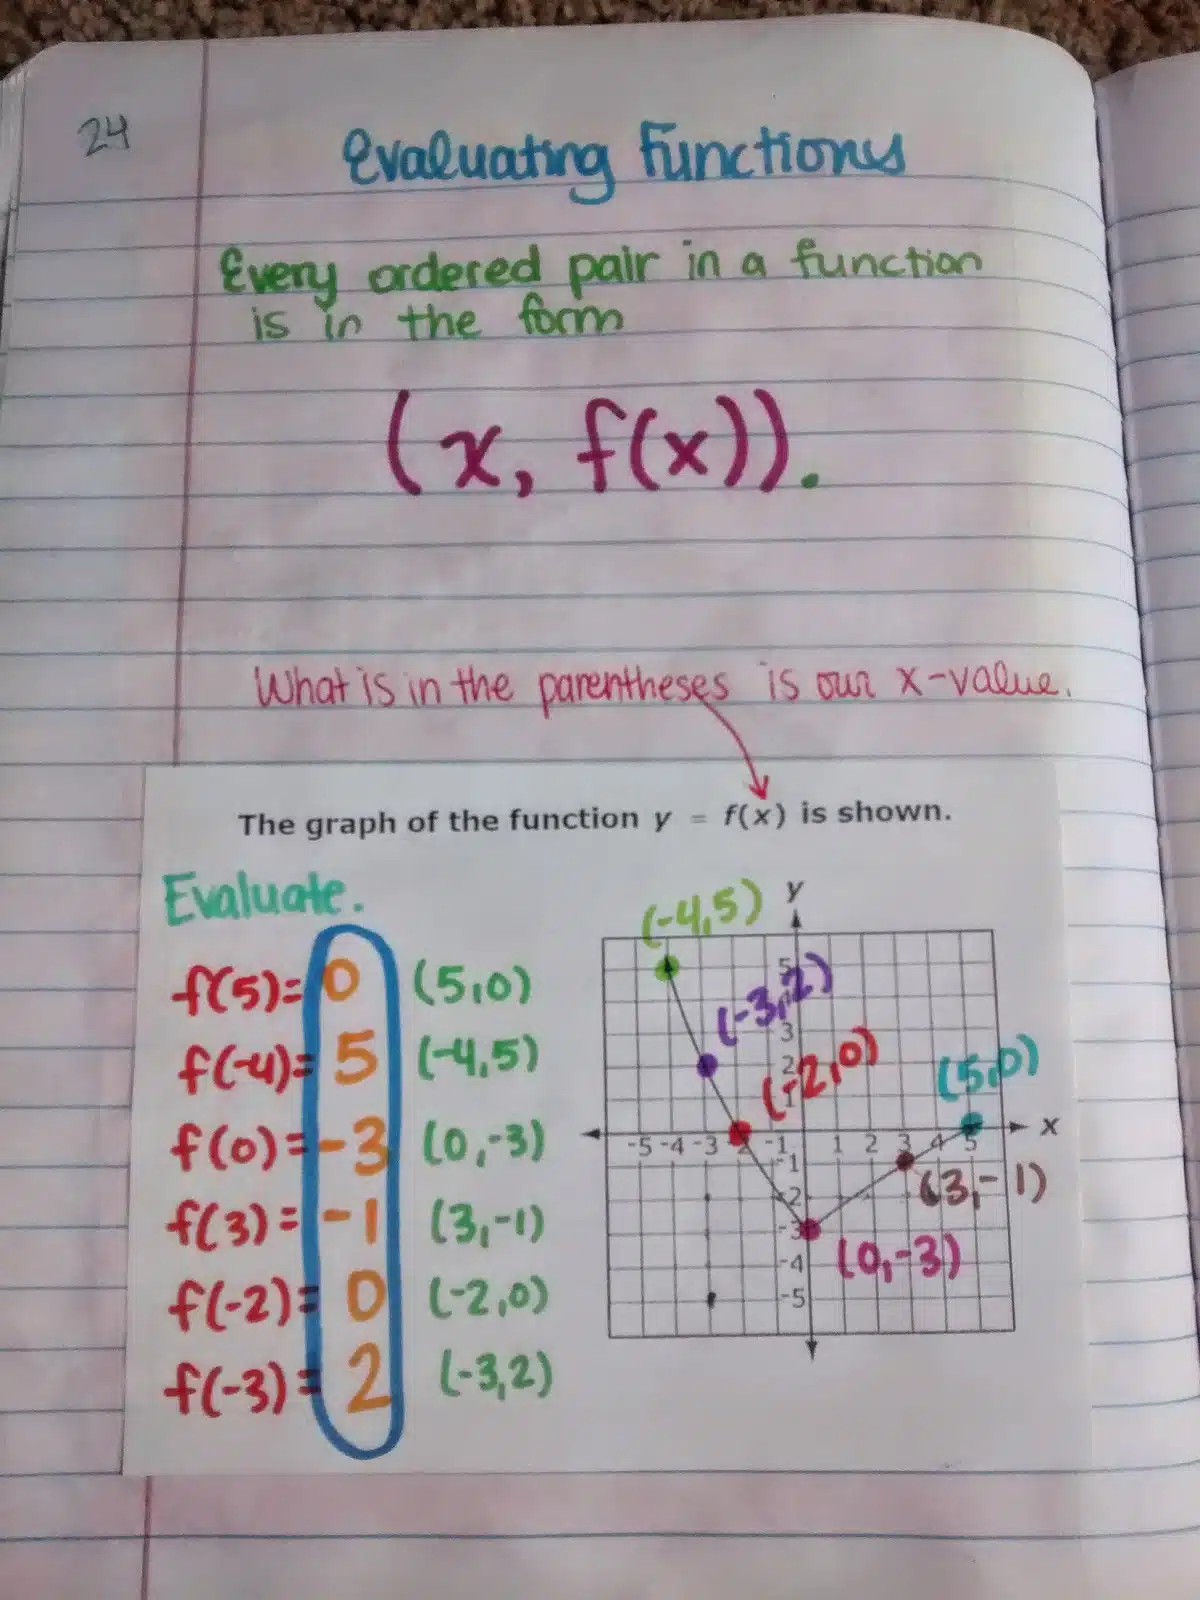 24
Evaluating Functions
Every ordered pair in a function
is in the form
(x, f(x)).
What is in the parentheses is our x-value.
The graph of the function y = f(x) is shown.
Evaluate.
f(5)=0 (5,0)
f(-4)=5 (-4,5)
f(0)=-3 (0,-3)
f(3)=-1 (3,-1)
f(-2)=0 (-2,0)
f(-3)=2 (-3,2)
y
(-4,5)
5
(-3,2)
3
2
(-2,0)
1
(5,0)
-5 -4 -3 -1 1 2 3 4 5 x
-1
(3,-1)
-2
-3
(0,-3)
-4
-5